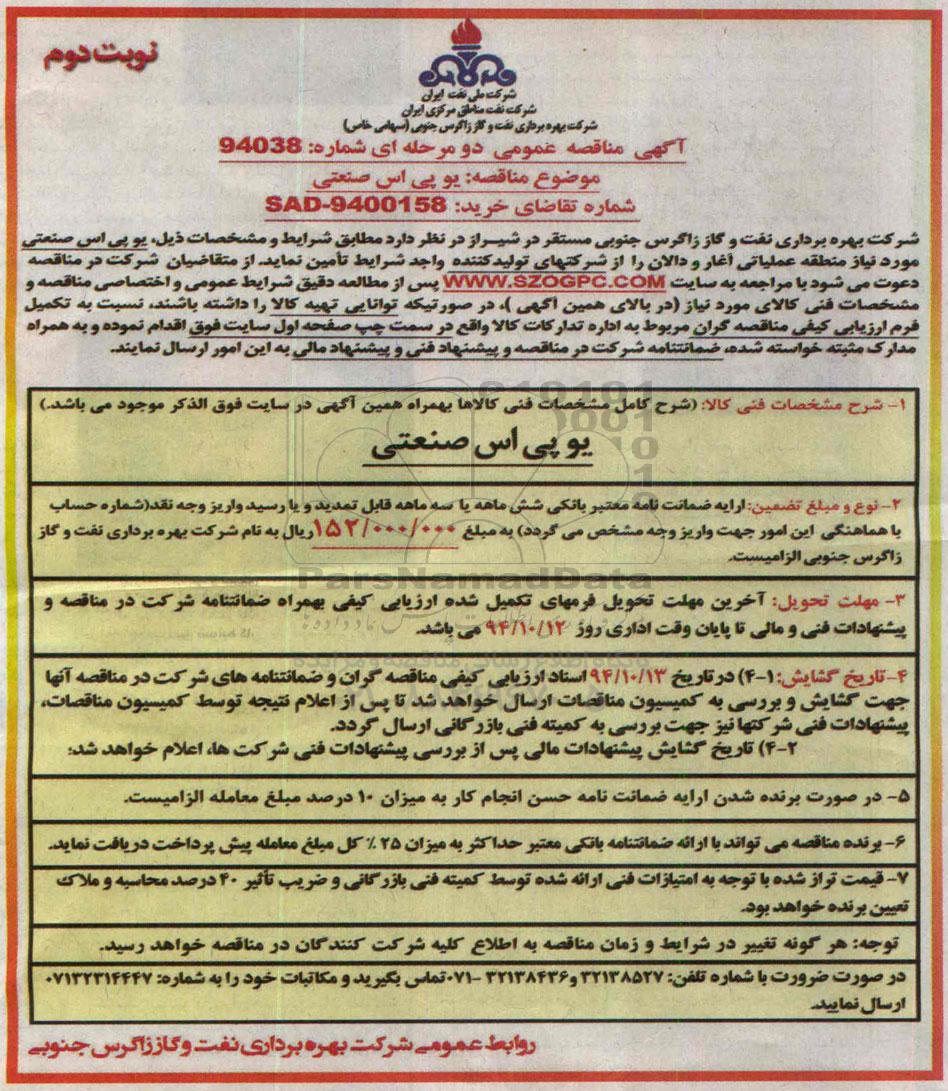 نوبت دوم
شرکت ملی نفت ایران
شرکت نفت مناطق مرکزی ایران
شرکت بهره برداری نفت و گاز زاگرس جنوبی (سهامی خاص)
آگهی مناقصه عمومی دو مرحله ای شماره: 94038
موضوع مناقصه: یو پی اس صنعتی
شماره تقاضای خرید: SAD-9400158
شرکت بهره برداری نفت و گاز زاگرس جنوبی مستقر در شیراز در نظر دارد مطابق شرایط و مشخصات ذیل، یو پی اس صنعتی
مورد نیاز منطقه عملیاتی آغار و دالان را از شرکتهای تولیدکننده واجد شرایط تأمین نماید. از متقاضیان شرکت در مناقصه
دعوت می شود با مراجعه به سایت WWW.SZOGPC.COM پس از مطالعه دقیق شرایط عمومی و اختصاصی مناقصه و
مشخصات فنی کالای مورد نیاز (در بالای همین آگهی )، در صورتیکه توانایی تهیه کالا را داشته باشند، نسبت به تکمیل
فرم ارزیابی کیفی مناقصه گران مربوط به اداره تدارکات کالا واقع در سمت چپ صفحه اول سایت فوق اقدام نموده و به همراه
مدارک مثبته خواسته شده، ضمانتنامه شرکت در مناقصه و پیشنهاد فنی و پیشنهاد مالی به این امور ارسال نمایند.
۱- شرح مشخصات فنی کالا: (شرح کامل مشخصات فنی کالاها بهمراه همین آگهی در سایت فوق الذکر موجود می باشد.)
یو پی اس صنعتی
۲- نوع و مبلغ تضمین: ارایه ضمانت نامه معتبر بانکی شش ماهه یا سه ماهه قابل تمدید و یا رسید واریز وجه نقد(شماره حساب
با هماهنگی این امور جهت واریز وجه مشخص می گردد) به مبلغ ۱۵۲/۰۰۰/۰۰۰ ریال به نام شرکت بهره برداری نفت و گاز
زاگرس جنوبی الزامیست.
ParsNamadData
۳- مهلت تحویل: آخرین مهلت تحویل فرمهای تکمیل شده ارزیابی کیفی بهمراه ضمانتنامه شرکت در مناقصه و
پیشنهادات فنی و مالی تا پایان وقت اداری روز ۹۴/۱۰/۱۲ می باشد.
۴- تاریخ گشایش: ۴-۱) در تاریخ ۹۴/۱۰/۱۳ اسناد ارزیابی کیفی مناقصه گران و ضمانتنامه های شرکت در مناقصه آنها
جهت گشایش و بررسی به کمیسیون مناقصات ارسال خواهد شد تا پس از اعلام نتیجه توسط کمیسیون مناقصات،
پیشنهادات فنی شرکتها نیز جهت بررسی به کمیته فنی بازرگانی ارسال گردد.
۴-۲) تاریخ گشایش پیشنهادات مالی پس از بررسی پیشنهادات فنی شرکت ها، اعلام خواهد شد:
۵- در صورت برنده شدن ارایه ضمانت نامه حسن انجام کار به میزان ۱۰ درصد مبلغ معامله الزامیست.
۶- برنده مناقصه می تواند با ارائه ضمانتنامه بانکی معتبر حداکثر به میزان ۲۵ ٪ کل مبلغ معامله پیش پرداخت دریافت نماید.
۷- قیمت تراز شده با توجه به امتیازات فنی ارائه شده توسط کمیته فنی بازرگانی و ضریب تأثیر ۴۰ درصد محاسبه و ملاک
تعیین برنده خواهد بود.
توجه: هر گونه تغییر در شرایط و زمان مناقصه به اطلاع کلیه شرکت کنندگان در مناقصه خواهد رسید.
در صورت ضرورت با شماره تلفن: ۳۲۱۳۸۵۲۷ و ۳۲۱۳۸۴۳۶ -۰۷۱تماس بگیرید و مکاتبات خود را به شماره: ۰۷۱۳۲۳۱۴۴۴۷
ارسال نمایید.
روابط عمومی شرکت بهره برداری نفت و گاز زاگرس جنوبی